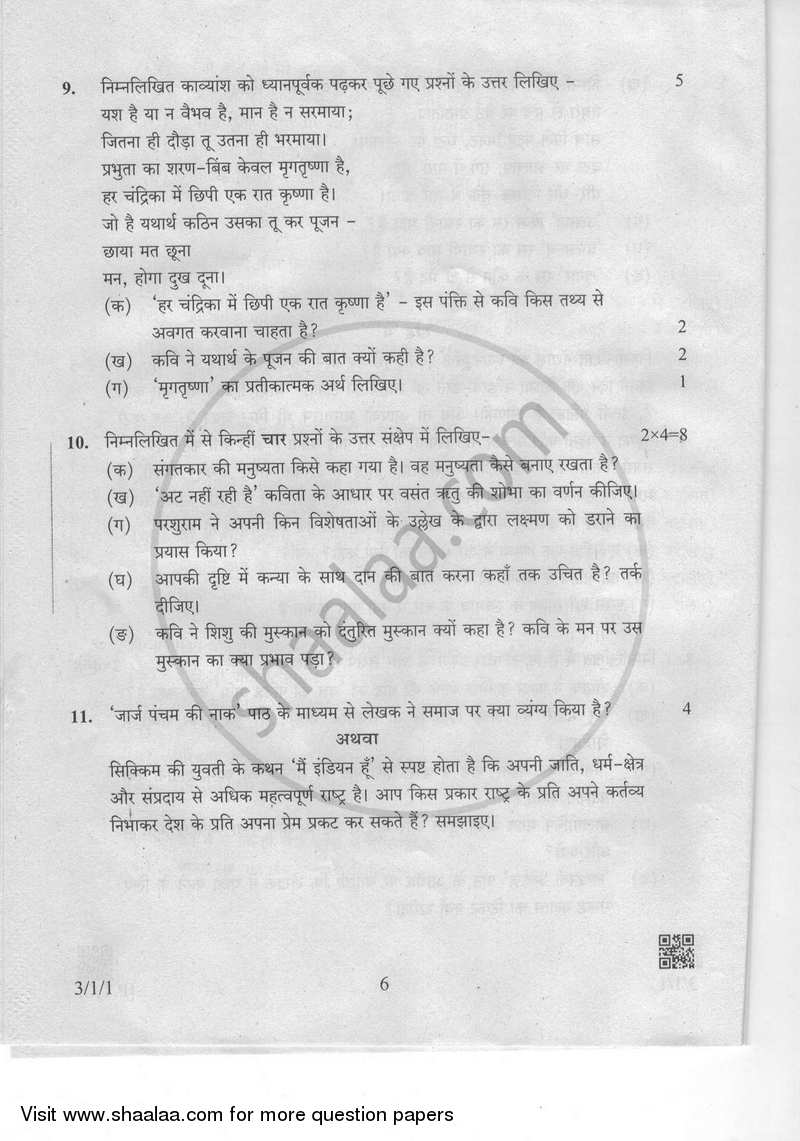 9. निम्नलिखित काव्यांश को ध्यानपूर्वक पढ़कर पूछे गए प्रश्नों के उत्तर लिखिए – 5
यश है या न वैभव है, मान है न सरमाया;
जितना ही दौड़ा तू उतना ही भरमाया।
प्रभुता का शरण-बिंब केवल मृगतृष्णा है,
हर चंद्रिका में छिपी एक रात कृष्णा है।
जो है यथार्थ कठिन उसका तू कर पूजन –
छाया मत छूना
मन, होगा दुख दूना।
(क) 'हर चंद्रिका में छिपी एक रात कृष्णा है' – इस पंक्ति से कवि किस तथ्य से
अवगत करवाना चाहता है? 2
(ख) कवि ने यथार्थ के पूजन की बात क्यों कही है? 2
(ग) 'मृगतृष्णा' का प्रतीकात्मक अर्थ लिखिए। 1
10. निम्नलिखित में से किन्हीं चार प्रश्नों के उत्तर संक्षेप में लिखिए– 2×4=8
(क) संगतकार की मनुष्यता किसे कहा गया है। वह मनुष्यता कैसे बनाए रखता है?
(ख) 'अट नहीं रही है' कविता के आधार पर वसंत ऋतु की शोभा का वर्णन कीजिए।
(ग) परशुराम ने अपनी किन विशेषताओं के उल्लेख के द्वारा लक्ष्मण को डराने का
प्रयास किया?
(घ) आपकी दृष्टि में कन्या के साथ दान की बात करना कहाँ तक उचित है? तर्क
दीजिए।
(ङ) कवि ने शिशु की मुस्कान को दंतुरित मुस्कान क्यों कहा है? कवि के मन पर उस
मुस्कान का क्या प्रभाव पड़ा?
11. 'जार्ज पंचम की नाक' पाठ के माध्यम से लेखक ने समाज पर क्या व्यंग्य किया है? 4
अथवा
सिक्किम की युवती के कथन 'मैं इंडियन हूँ' से स्पष्ट होता है कि अपनी जाति, धर्म-क्षेत्र
और संप्रदाय से अधिक महत्वपूर्ण राष्ट्र है। आप किस प्रकार राष्ट्र के प्रति अपने कर्तव्य
निभाकर देश के प्रति अपना प्रेम प्रकट कर सकते हैं? समझाइए।
shaalaa.com
3/1/1 6
Visit www.shaalaa.com for more question papers